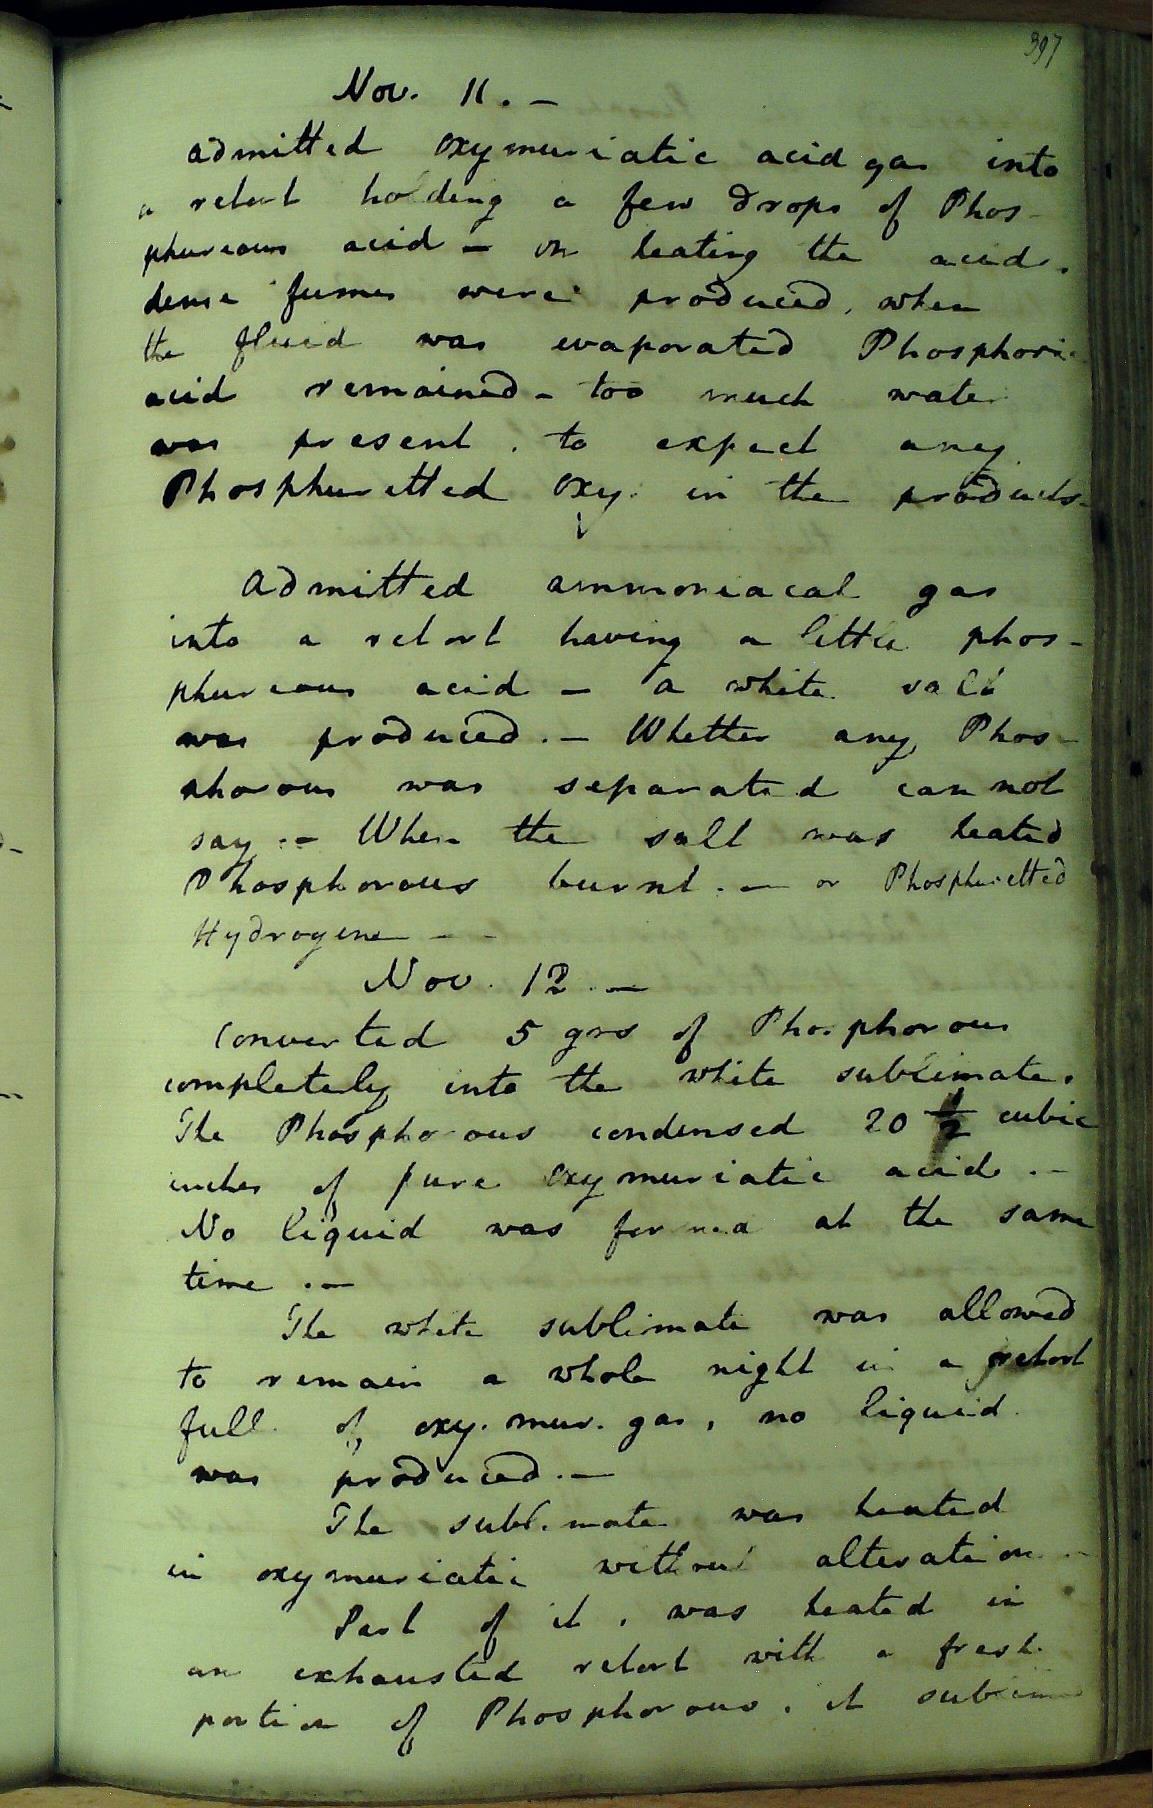 397
Nov. 11. –
admitted oxymuriatic acid gas into
a retort holding a few drops of Phos-
phureous acid – on heating the acid.
dense fumes were produced, when
the fluid was evaporated Phosphoric
acid remained – too much water
was present. to expect any
Phosphuretted oxy. in the products –
admitted ammoniacal gas
into a retort having a little phos-
phureous acid – a white salt
was produced. – Whether any Phos-
phorous was separated can not
say. – When the salt was heated
Phosphorous burnt. – or Phosphuretted
Hydrogene – –
Nov. 12. –
Converted 5 grs of Phosphorous
completely into the white sublimate.
The Phosphorous condensed 20 1/2 cubic
inches of pure oxymuriatic acid. –
No liquid was formed at the same
time. –
The white sublimate was allowed
to remain a whole night in a retort
full of oxy. mur. gas, no liquid
was produced. –
The sublimate was heated
in oxymuriatic without alteration –
Part of it, was heated in
an exhausted retort with a fresh
portion of Phosphorous. it sublimed